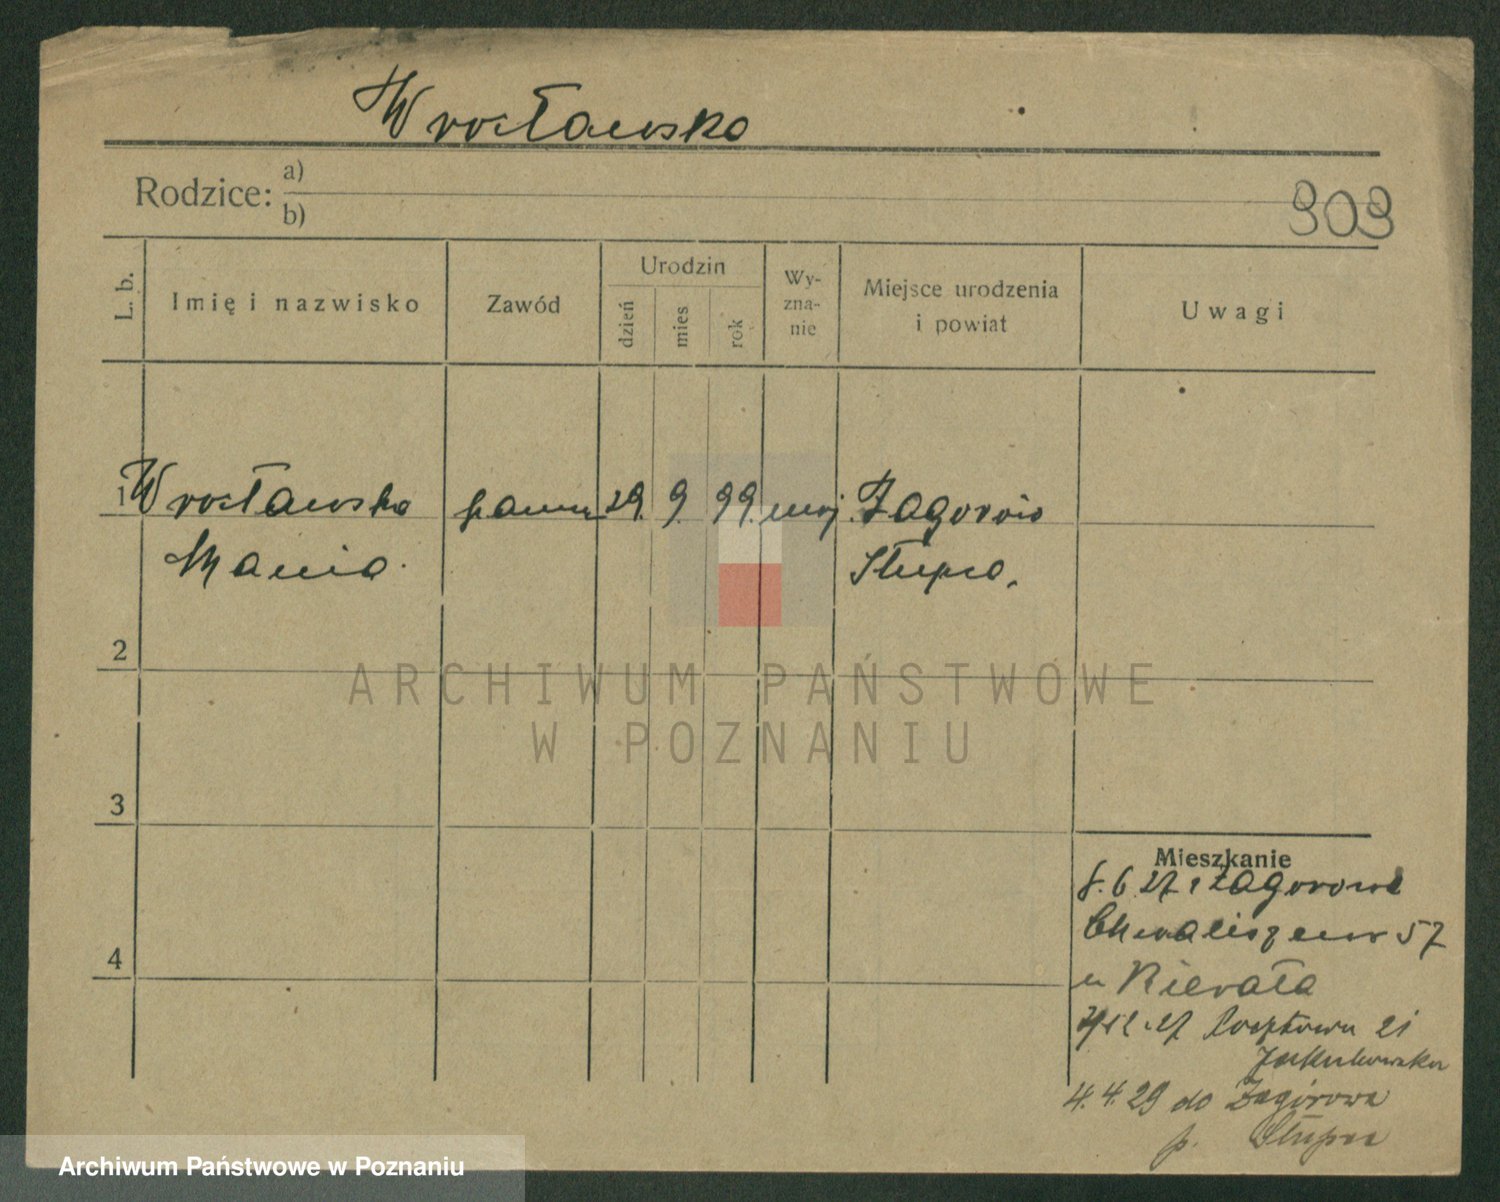 Wrocławska
Rodzice: a)
b)
909
L. b.
Imię i nazwisko
Zawód
Urodzin
dzień
mies
rok
Wy-
zna-
nie
Miejsce urodzenia
i powiat
Uwagi
1 Wrocławska panna 29. 9. 99. mojż. Zagorów
Mania Słupca.
2
3
4
Mieszkanie
8.6.27 z Zagorowa
Chwaliszewo 57
u
27 Pocztowa 21
Jakubowska
4.4.29 do Zagórowa
p. Słupca
ARCHIWUM PAŃSTWOWE
W POZNANIU
Archiwum Państwowe w Poznaniu